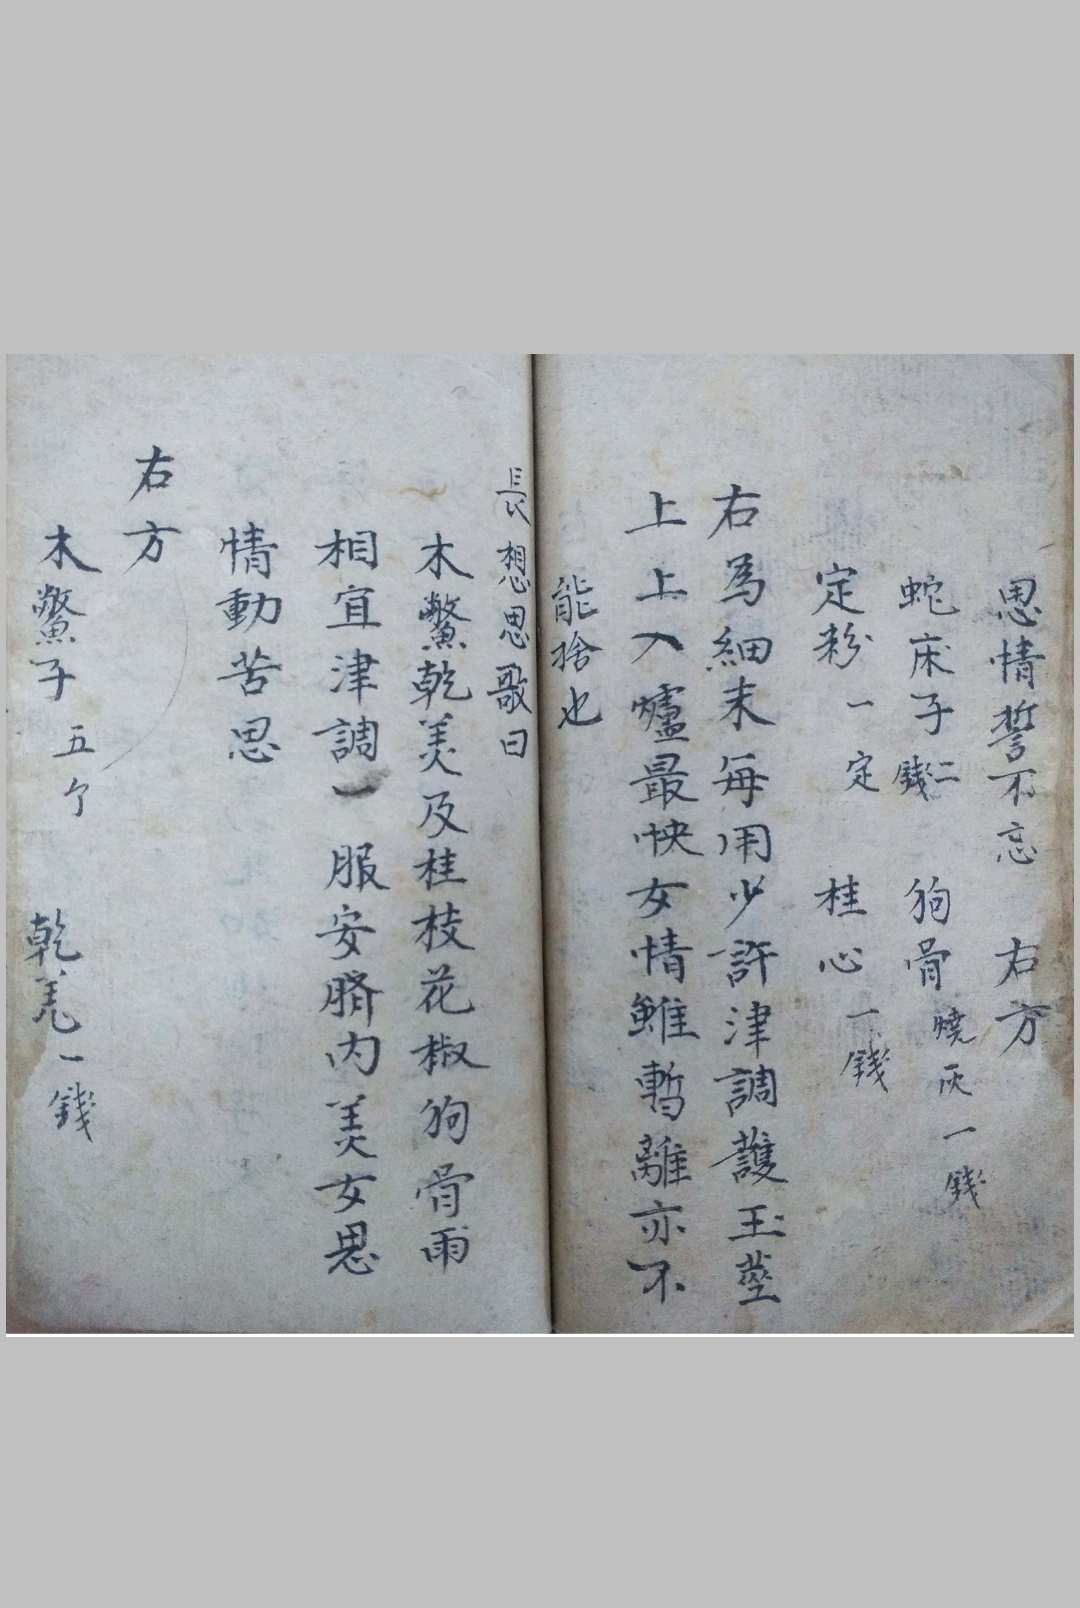 恩情誓不忘 右方
蛇床子二錢 狗骨燒灰一錢
定粉一定 桂心一錢
右為細末每用少許津調護玉莖
上上入爐最快女情雖暫離亦不
能捨也
長想思歌曰
木鱉乾姜及桂枝花椒狗骨兩
相宜津調一服安臍內美女思
情動苦思
右方
木鱉子五个 乾羌一錢